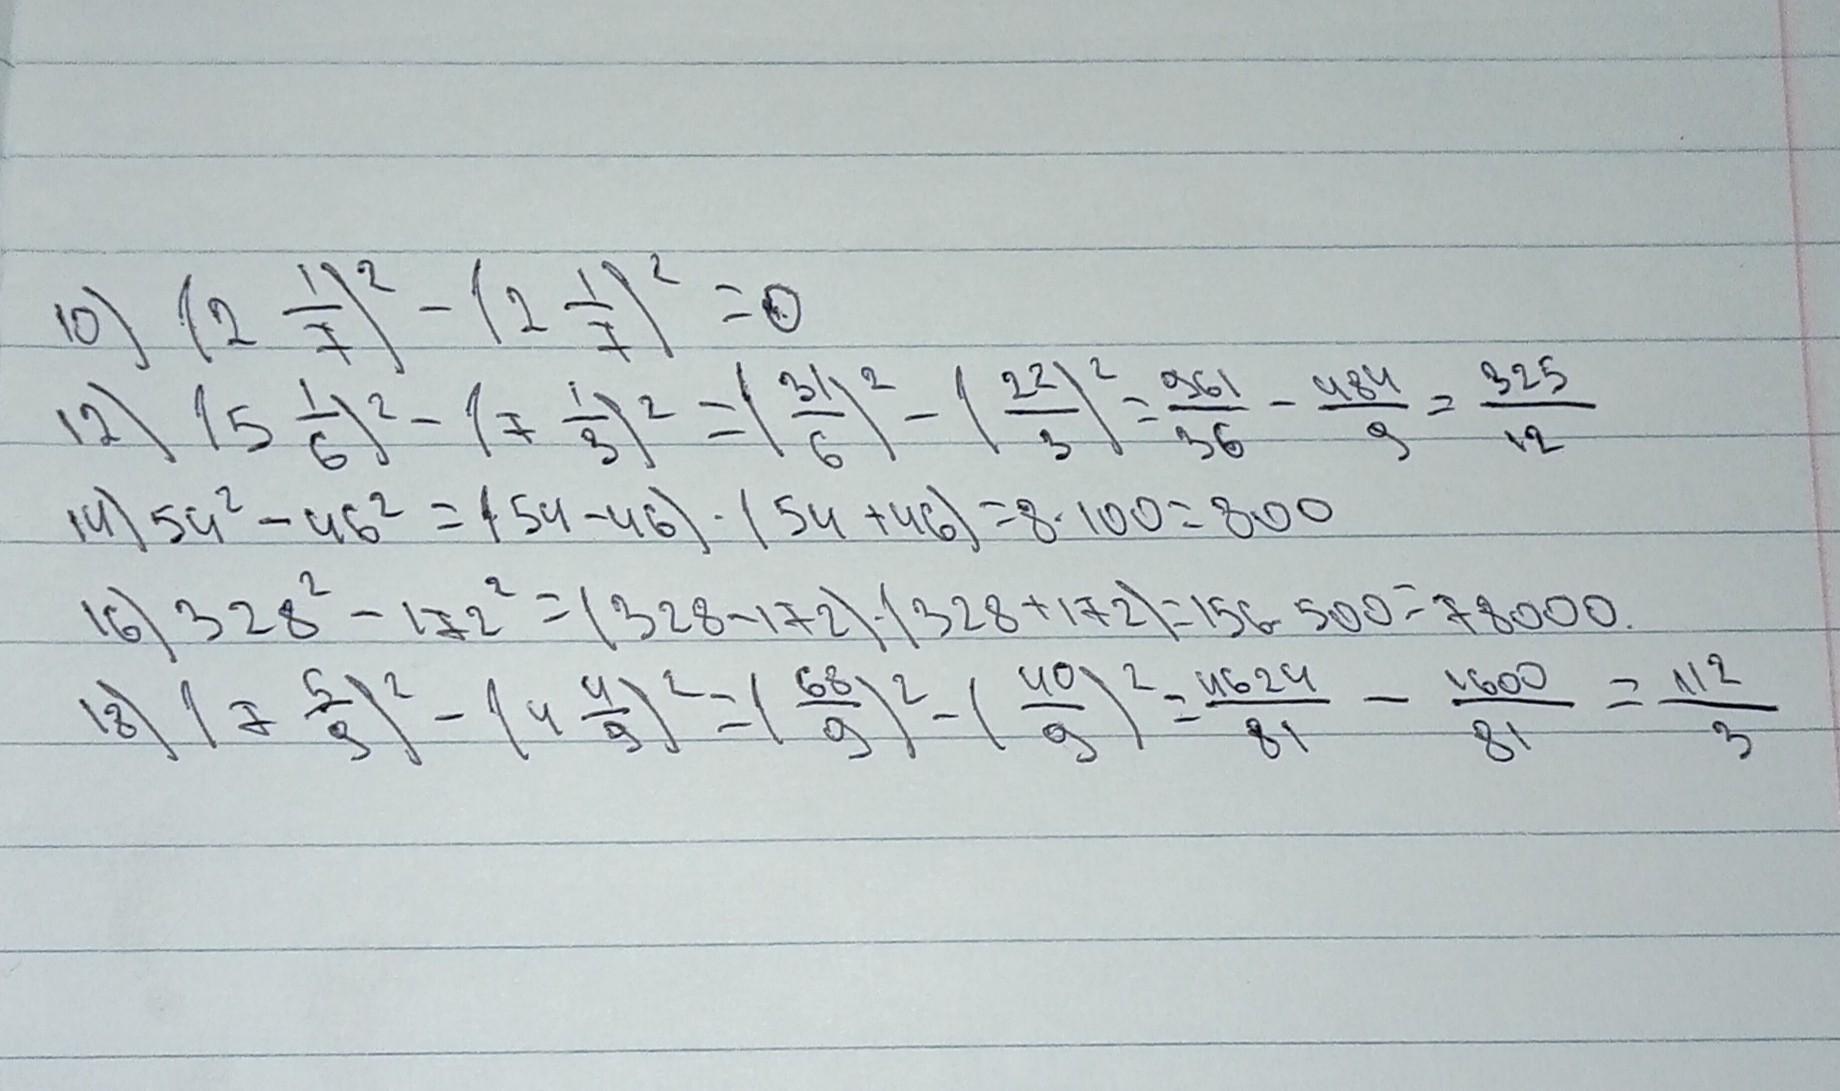 10) (2 1/7)² - (2 1/7)² = 0
12) (5 1/6)² - (7 1/3)² = (31/6)² - (22/3)² = 961/36 - 484/9 = 325/12
14) 54² - 46² = (54 - 46) · (54 + 46) = 8 · 100 = 800
16) 328² - 172² = (328 - 172) · (328 + 172) = 156 · 500 = 78000.
18) (7 5/9)² - (4 4/9)² = (68/9)² - (40/9)² = 4624/81 - 1600/81 = 112/3